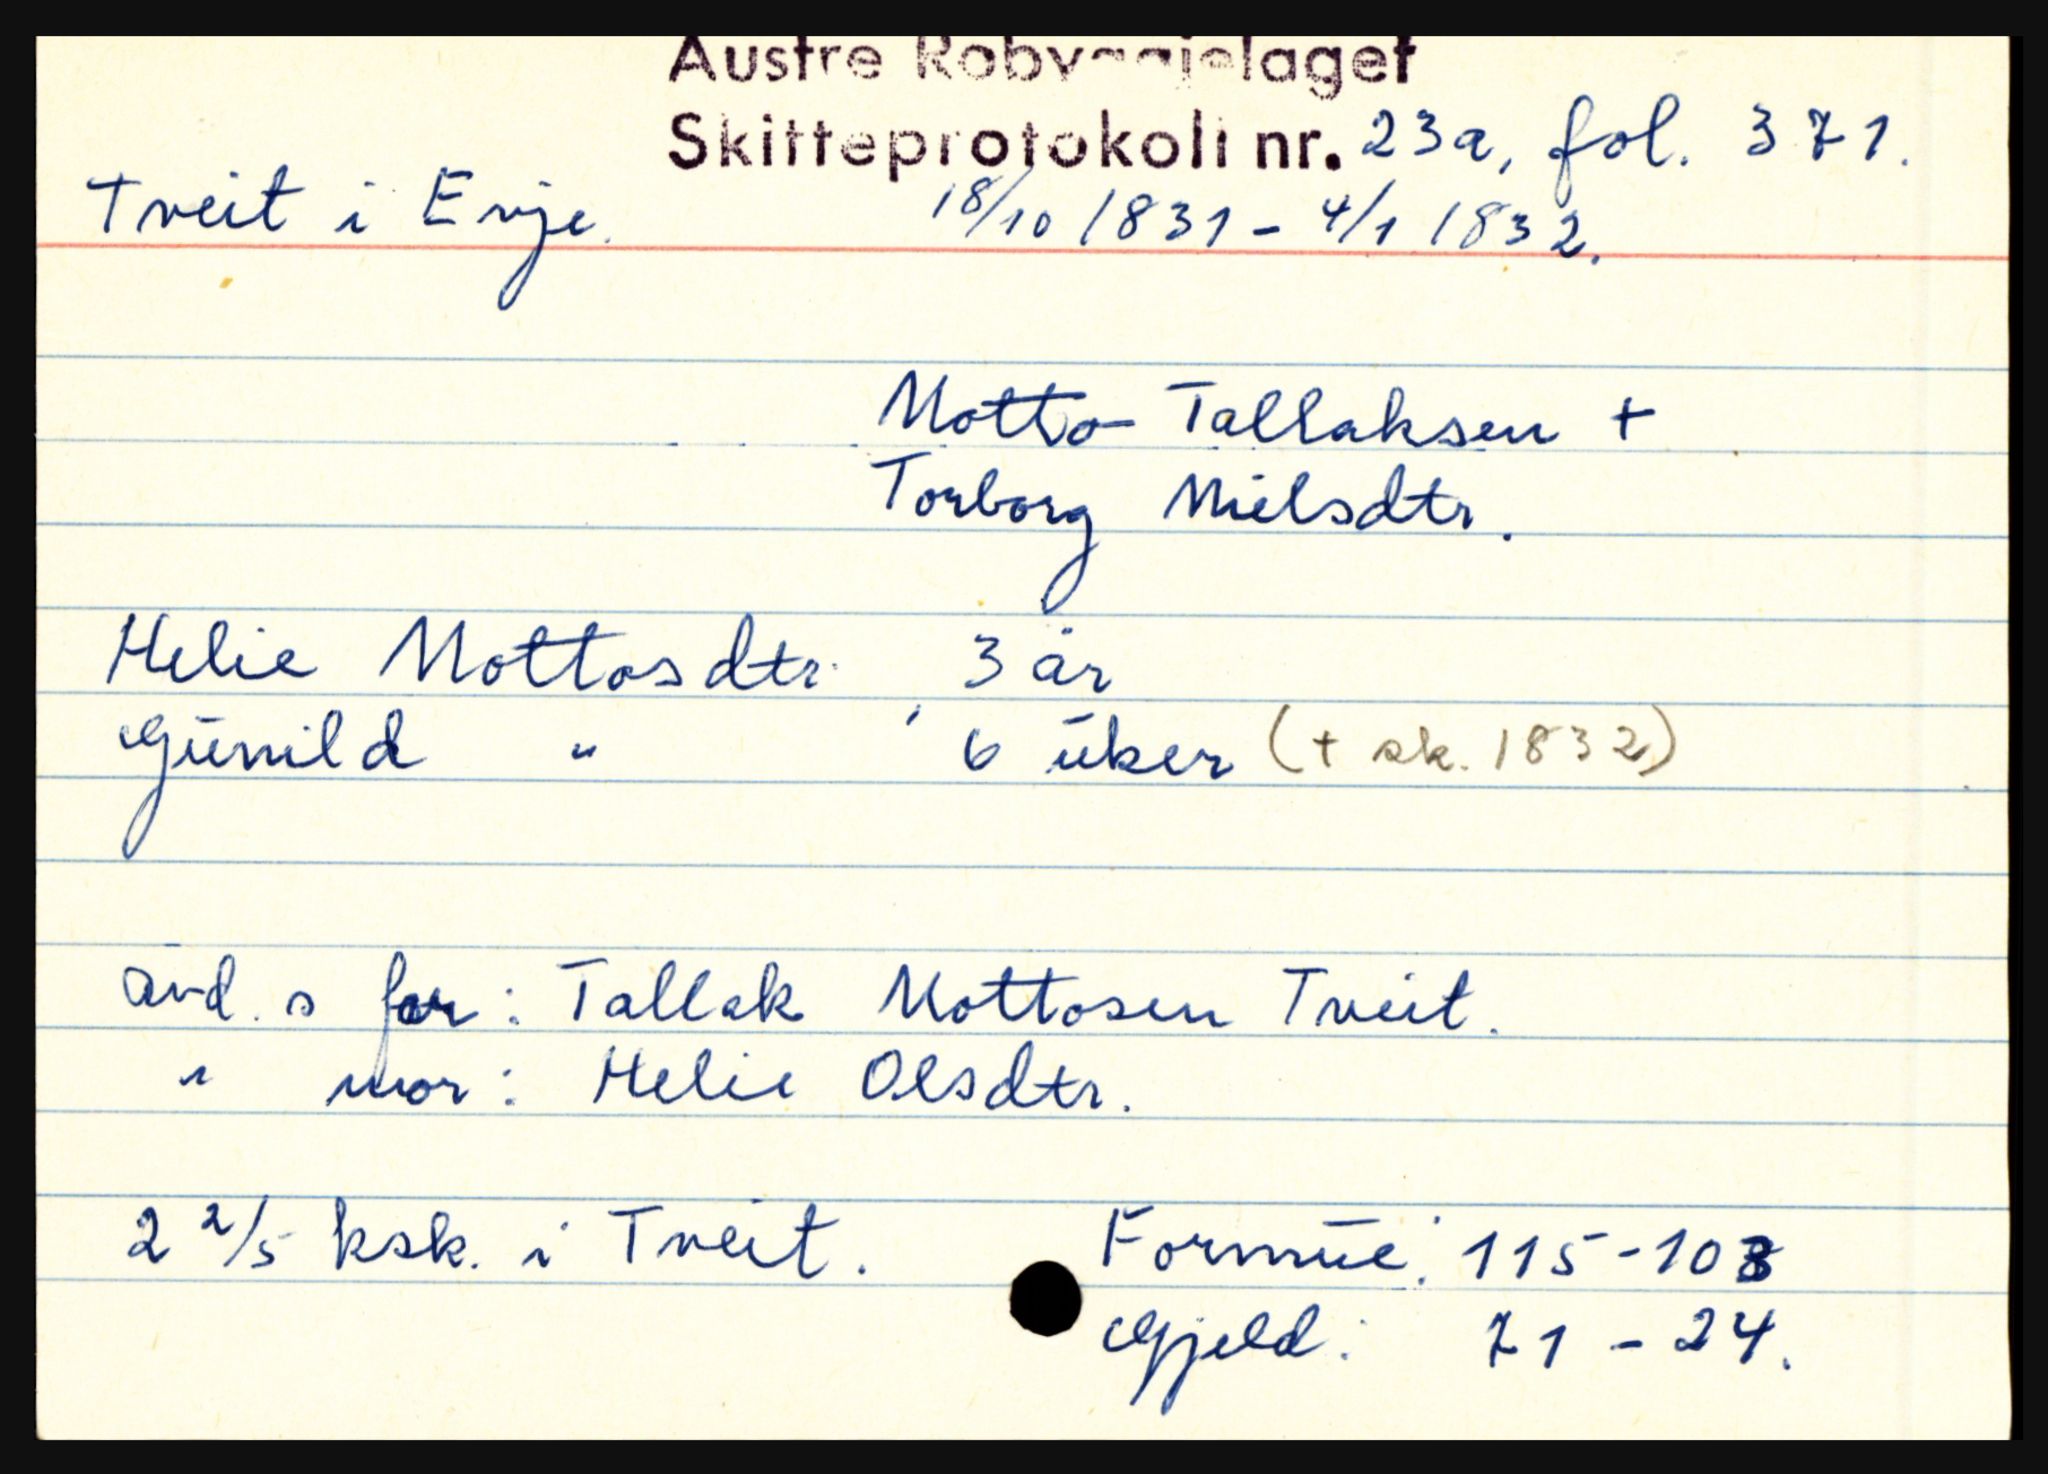 Austre Robyggjelaget
Skifteprotokoll nr. 23a, fol. 371.
Tveit i Evje. 18/10 1831 - 4/1 1832.
Motto Tallaksen +
Torborg Nielsdtr.
Helie Mottosdtr. 3 år
Gunild " 6 uker (+ sk. 1832)
avd. s far: Tallak Mottosen Tveit.
" mor: Helie Olsdtr.
2 2/5 ksk. i Tveit. Formue: 115-103
Gjeld: 71 - 24.